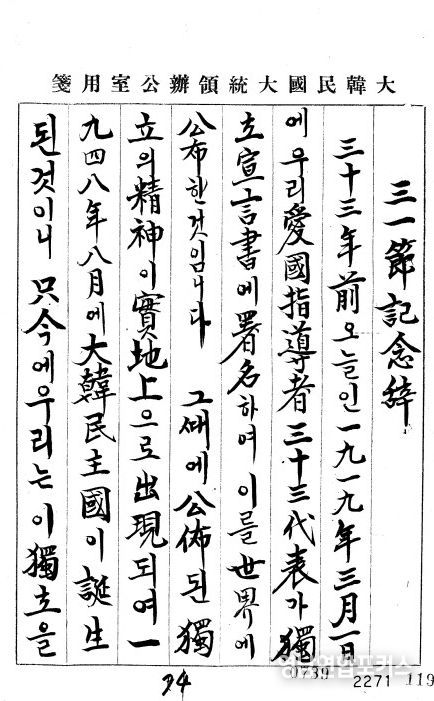 大韓民國大統領辦公室用箋
三一節記念辞
三十三年前오늘인一九一九年三月一日
에우리愛國指導者三十三代表가獨
立宣言書에署名하여이를世界에
公布한것임니다 그때에公佈된獨
立의精神이實地上으로出現되여一
九四八年八月에大韓民主國이誕生
된것이니只今에우리는이獨立을
94
0739
2271
119